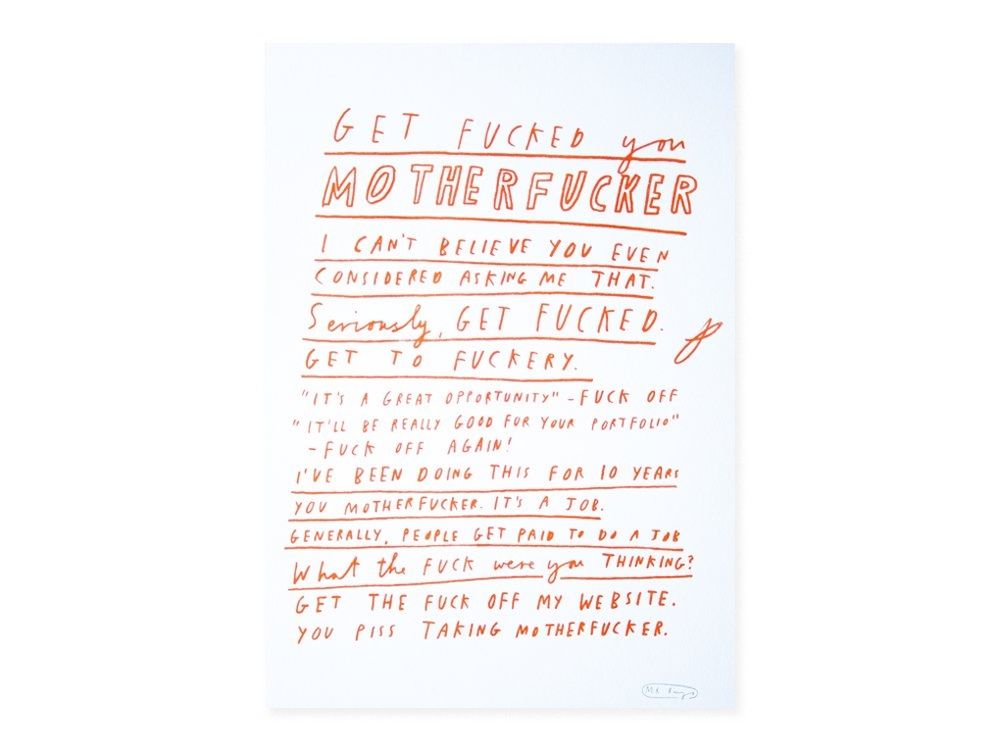 GET FUCKED you
MOTHERFUCKER
I CAN'T BELIEVE YOU EVEN
CONSIDERED ASKING ME THAT.
Seriously, GET FUCKED.
GET TO FUCKERY.
"IT'S A GREAT OPPORTUNITY" - FUCK OFF
"IT'LL BE REALLY GOOD FOR YOUR PORTFOLIO"
- FUCK OFF AGAIN!
I'VE BEEN DOING THIS FOR 10 YEARS
YOU MOTHERFUCKER. IT'S A JOB.
GENERALLY, PEOPLE GET PAID TO DO A JOB
What the FUCK were you THINKING?
GET THE FUCK OFF MY WEBSITE.
YOU PISS TAKING MOTHERFUCKER.
MR